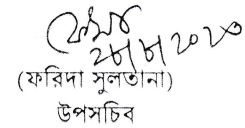 ২৮/৮/২০২৩
(ফরিদা সুলতানা)
উপসচিব